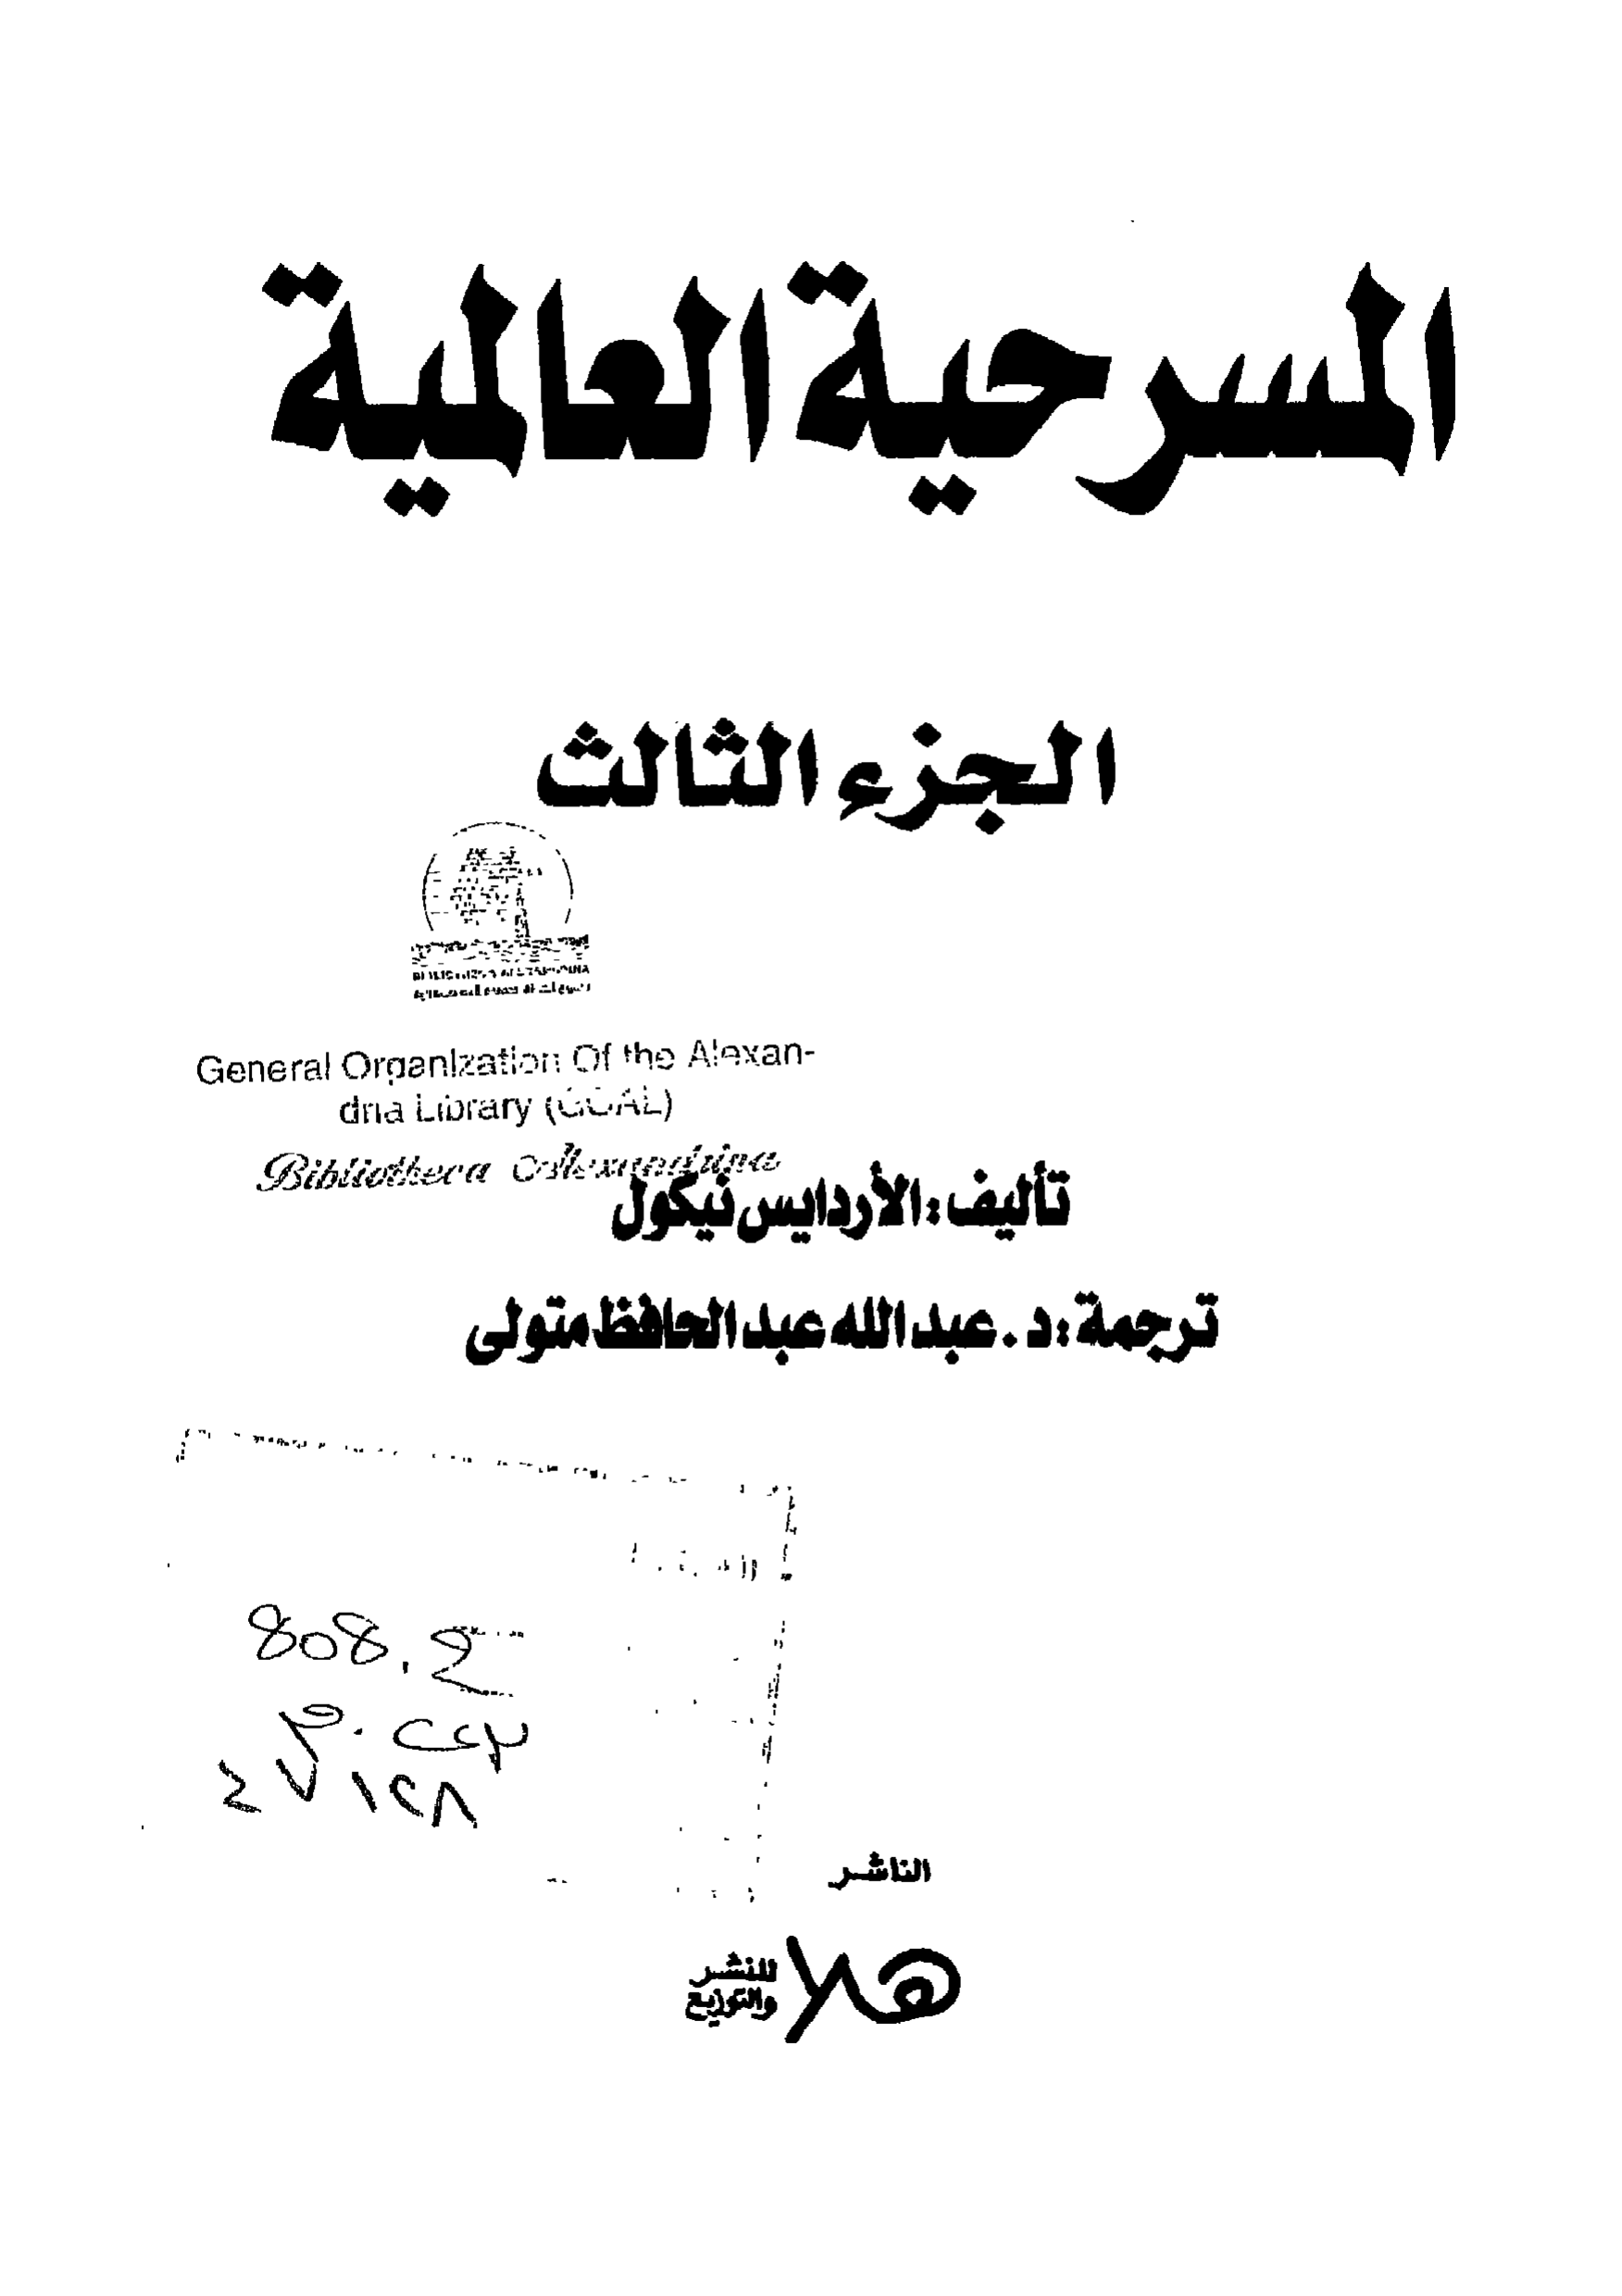 المسرحية العالمية
الجزء الثالث
General Organization Of the Alexan-
dria Library (GOAL)
Bibliotheca Alexandrina
تأليف: الأردايس نيكول
ترجمة: د. عبد الله عبد الحافظ متولى
808.2
الناشر
هلا
للنشر
والتوزيع